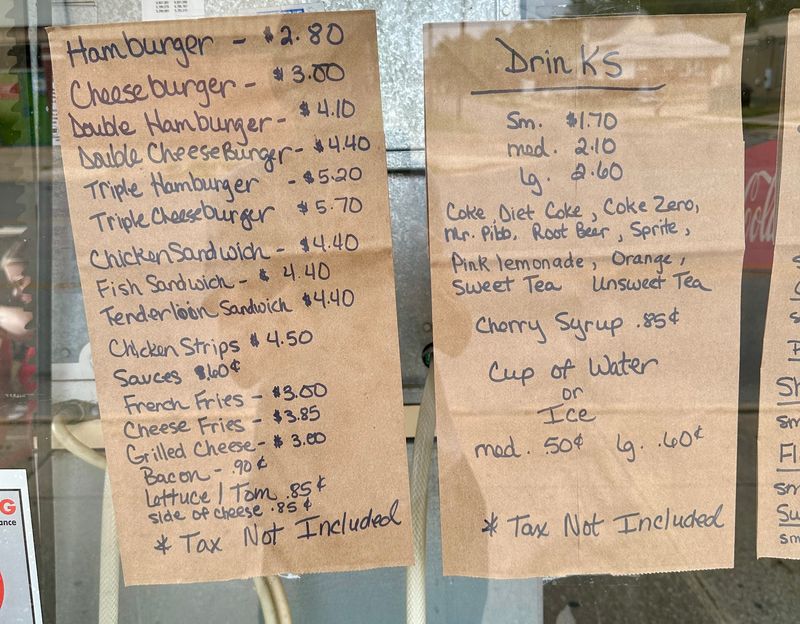 Hamburger - $2.80
Cheeseburger - $3.00
Double Hamburger - $4.10
Double CheeseBurger - $4.40
Triple Hamburger - $5.20
Triple Cheeseburger $5.70
Chicken Sandwich - $4.40
Fish Sandwich - $4.40
Tenderloin Sandwich $4.40
Chicken Strips $4.50
Sauces .60¢
French Fries - $3.00
Cheese Fries - $3.85
Grilled Cheese - $3.00
Bacon - .90¢
Lettuce / Tom .85¢
side of cheese .85¢
* Tax Not Included
Drinks
Sm. $1.70
med. 2.10
lg. 2.60
Coke, Diet Coke, Coke Zero,
Mr. Pibb, Root Beer, Sprite,
Pink lemonade, Orange,
Sweet Tea Unsweet Tea
Cherry Syrup .85¢
Cup of Water
or
Ice
med .50¢ lg. .60¢
* Tax Not Included